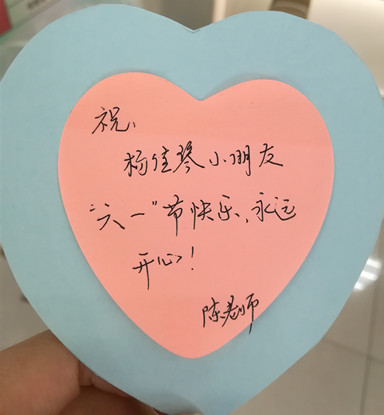 祝、
杨佳琴小朋友
“六一”节快乐、永远
开心！
陈老师